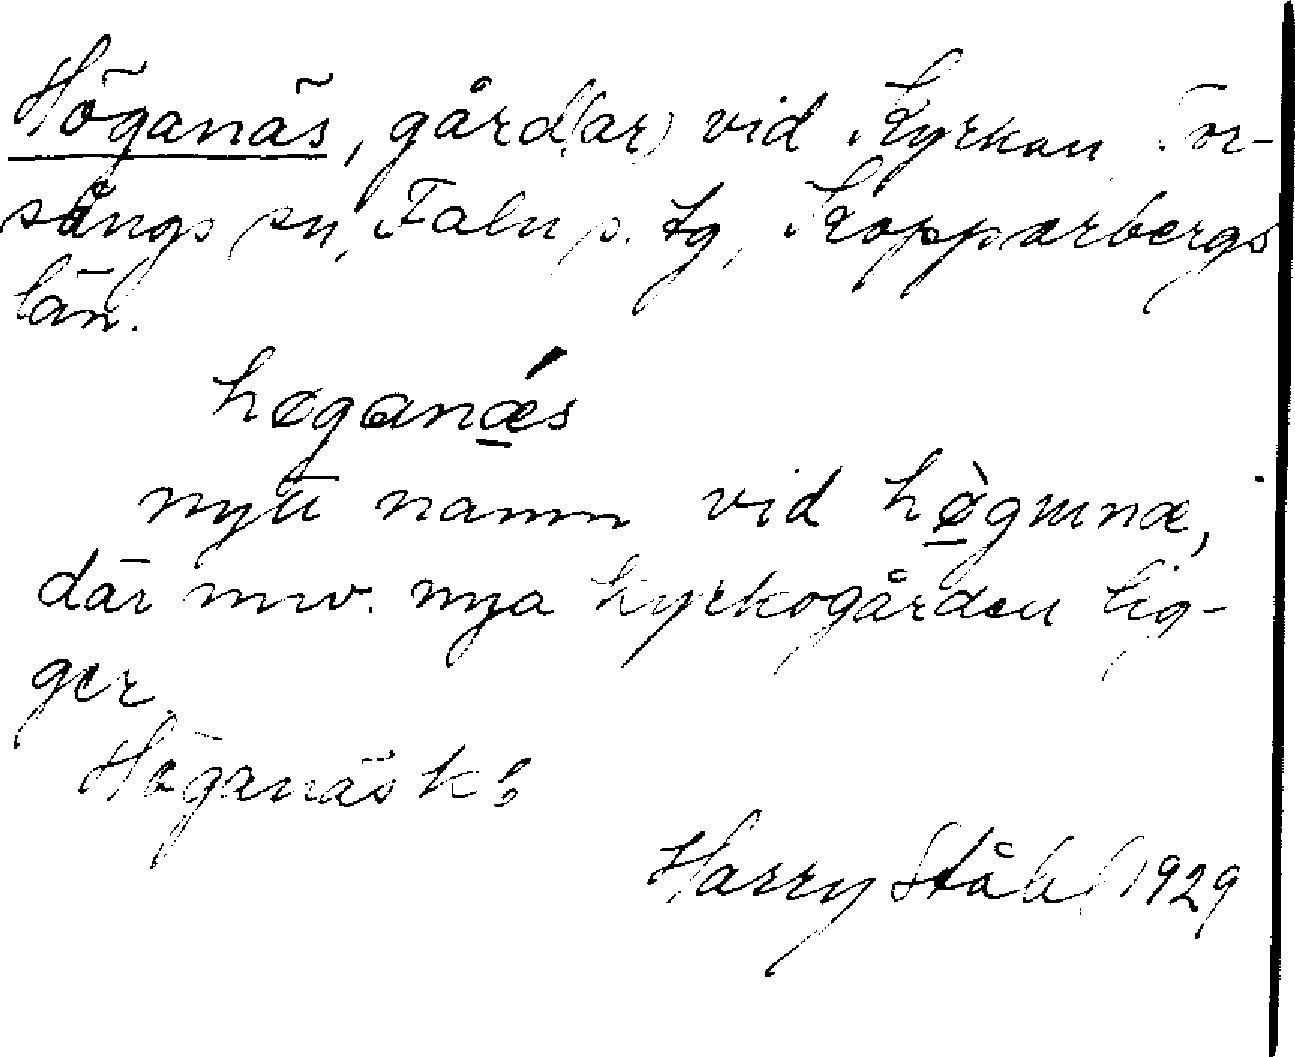 Höganäs, gård(ar) vid Kyrkan Tor-
sångs sn, Falu s. tg, Kopparbergs
län.
høganǽs
nytt namn vid hø̀gmnæ,
där nuv. nya kyrkogården lig-
ger.
Höganäs kb
Harry Ståhl 1929